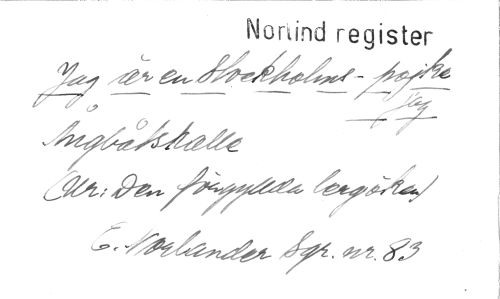 Norlind register
Jag är en Stockholms-pojke
jag
Ångbåtskalle
(Ur: Den förgyllda lergöken)
E. Norlander Sgr. nr. 83